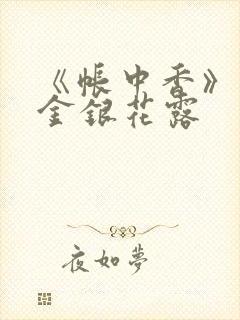 《帐中香》
金银花露
夜如梦